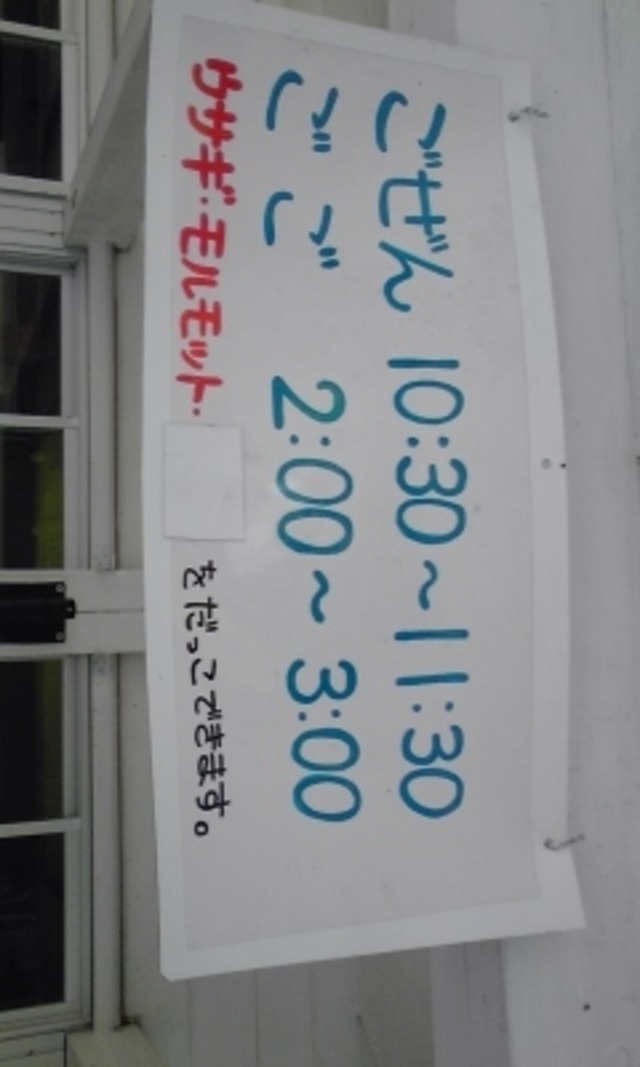 ごぜん 10:30～11:30
ごご 2:00～3:00
ウサギ・モルモット・ をだっこできます。